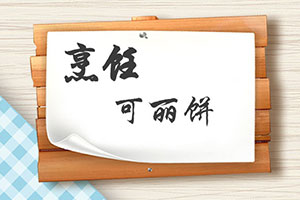 烹饪
可丽饼